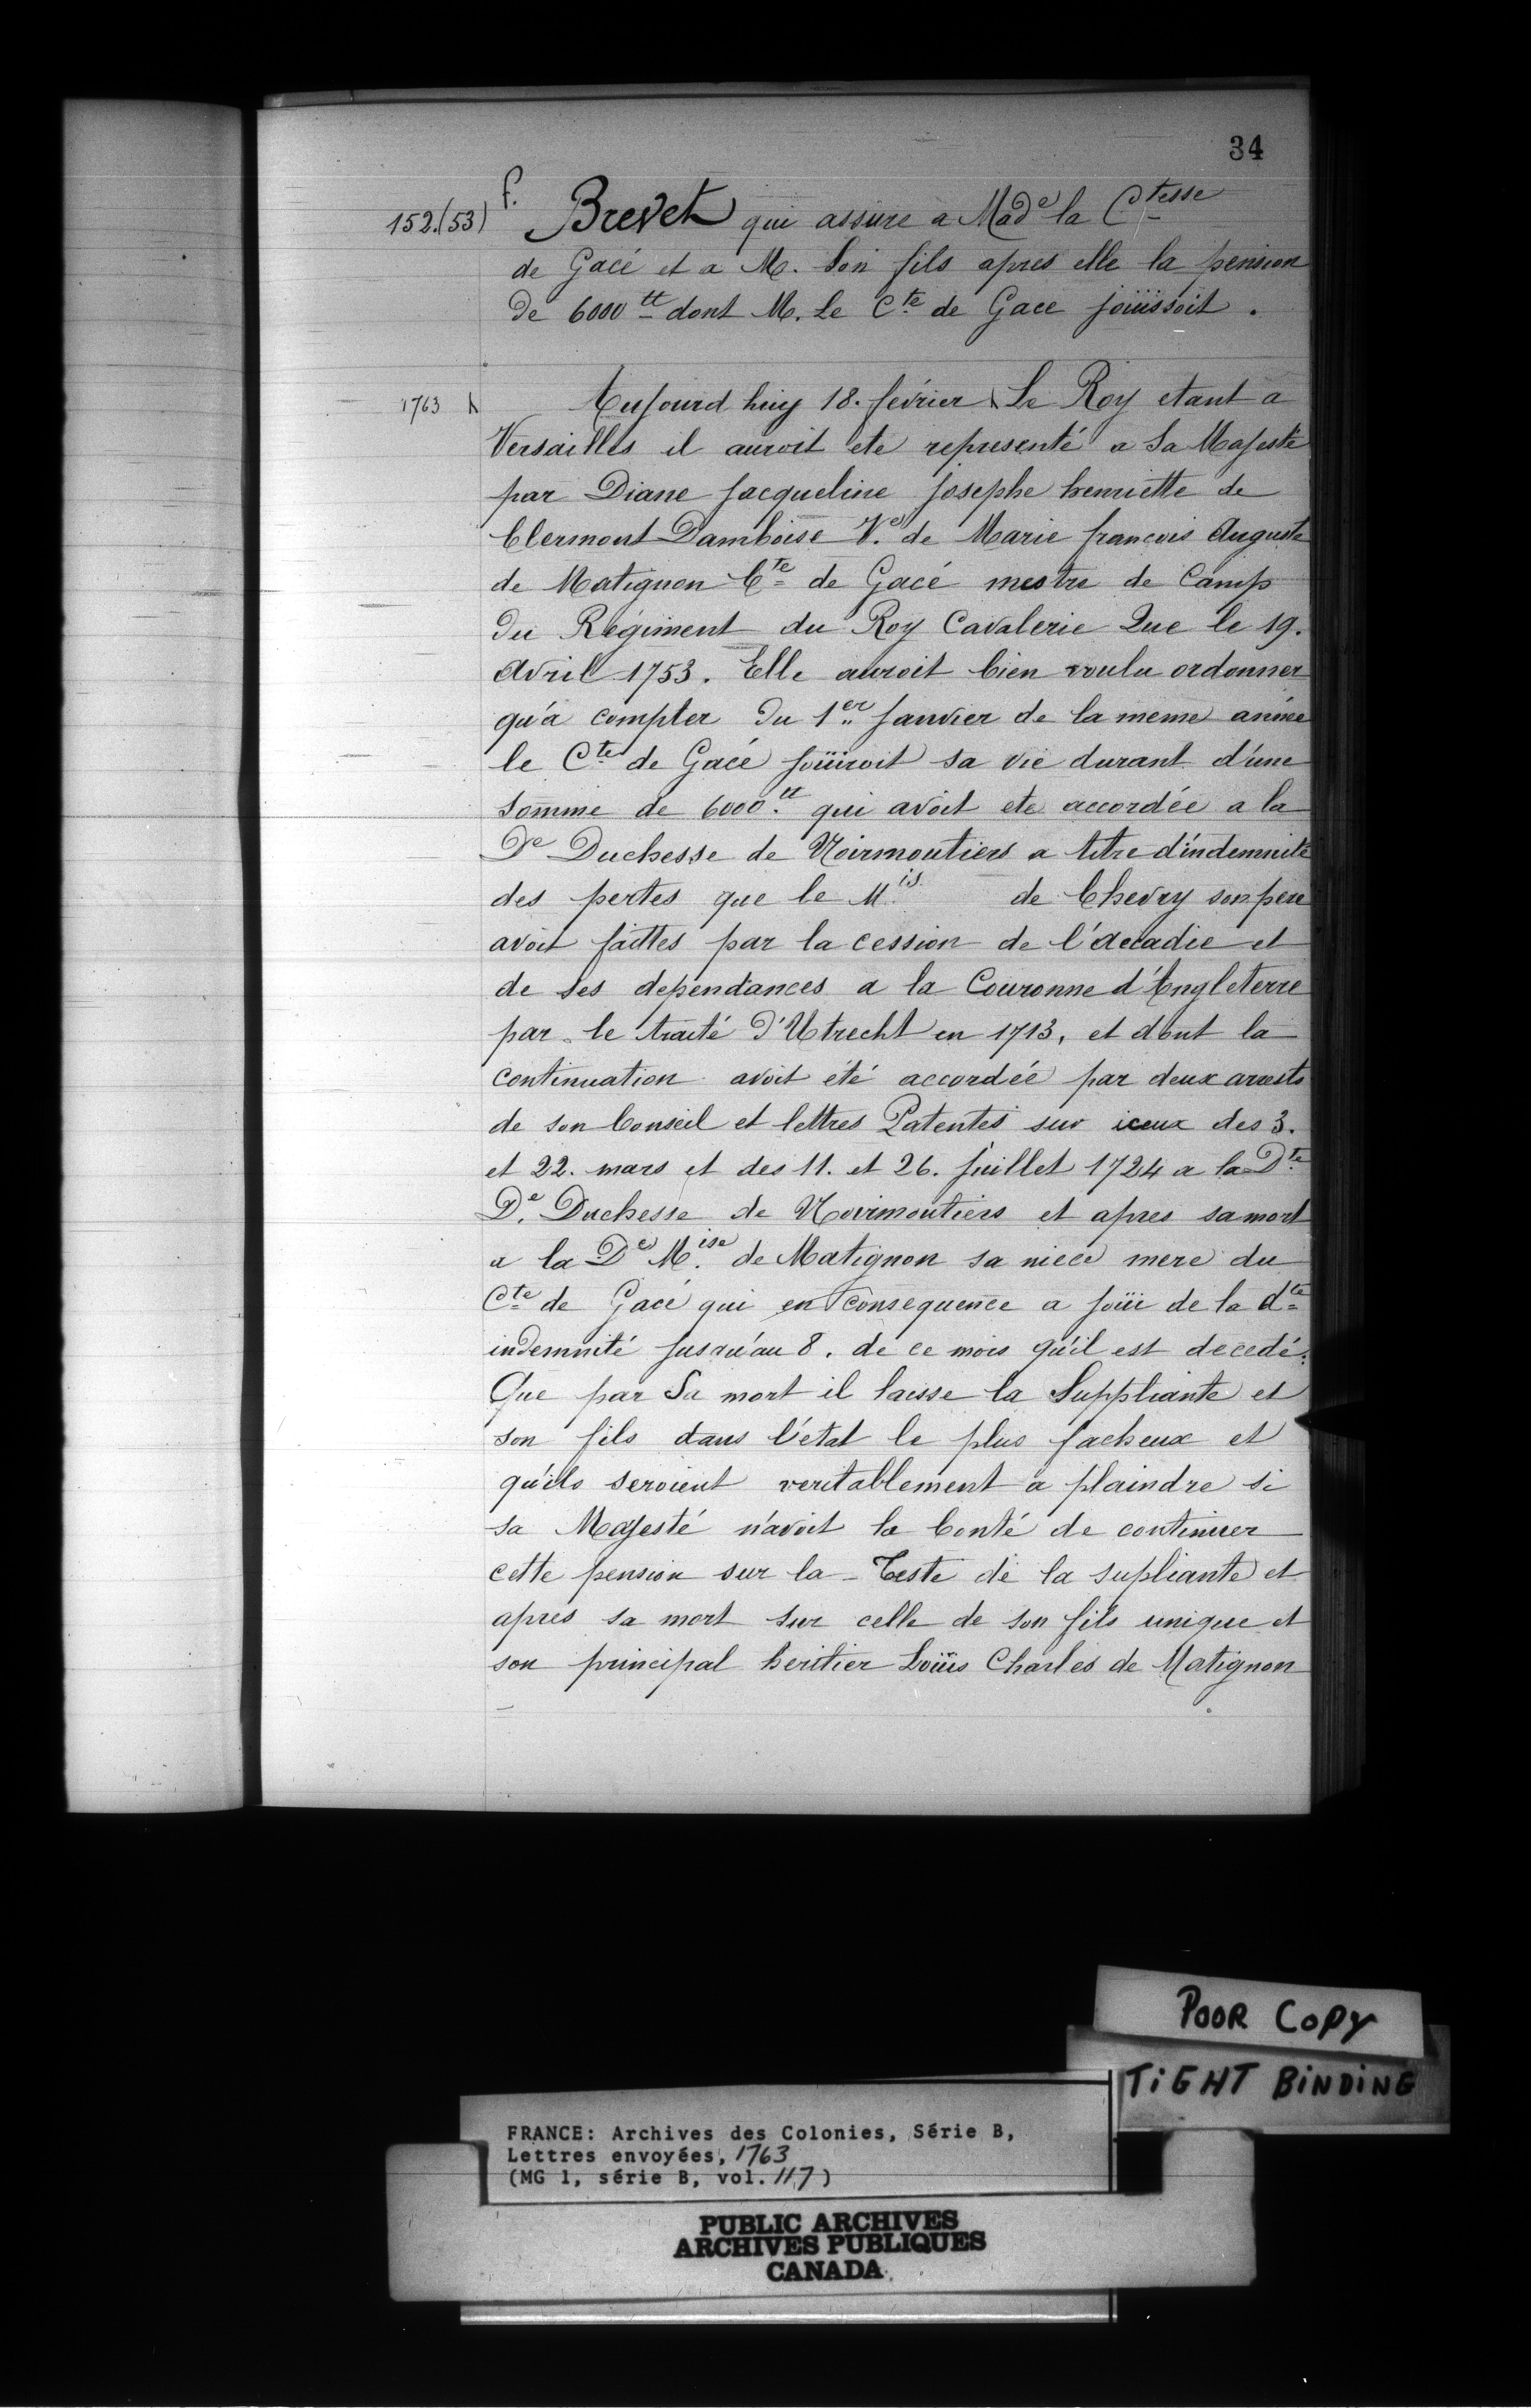 34
152.(53) f. Brevet qui assure a Made la Ctesse
de Gacé et a M. Son fils apres elle la pension
de 6000 tt dont M. Le Cte de Gace joüissoit.
1763 Aujourd huy 18. février \ Le Roy etant a
Versailles il auroit ete representé a Sa Majesté
par Diane Jacqueline Josephe henriette de
Clermont Damboise Ve. de Marie francois Auguste
de Matignon Cte de Gacé mestre de Camp
du Régiment du Roy Cavalerie Que le 19.
Avril 1753. Elle auroit bien voulu ordonner
qu'a compter du 1er Janvier de la meme année
le Cte de Gacé joüiroit sa vie durant d'une
somme de 6000. tt qui avoit ete accordée a la
De Duchesse de Noirmoutiers a titre d'indemnité
des pertes que le Mis. de Chevry son pere
avoit faittes par la cession de l'Accadie et
de ses dependances a la Couronne d'Angleterre
par le traité d'Utrecht en 1713, et dont la
continuation avoit été accordée par deux arrests
de son Conseil et lettres Patentes sur iceux des 3.
et 22. mars et des 11. et 26. Juillet 1724 a la Dte
De. Duchesse de Noirmoutiers et apres sa mort
a la De Mise. de Matignon sa niece mere du
Cte de Gacé qui en consequence a joüi de la dte
indemnité jusqu'au 8. de ce mois qu'il est decedé.
Que par Sa mort il laisse la Suppliante et
son fils dans l'état le plus facheux et
qu'ils seroient veritablement a plaindre si
sa Majesté n'avoit la bonté de continuer
cette pension sur la Teste de la supliante et
apres sa mort sur celle de son fils unique et
son principal heritier Loüis Charles de Matignon
POOR COPY
TIGHT BINDING
FRANCE: Archives des Colonies, Série B,
Lettres envoyées, 1763
(MG 1, série B, vol. 117)
PUBLIC ARCHIVES
ARCHIVES PUBLIQUES
CANADA